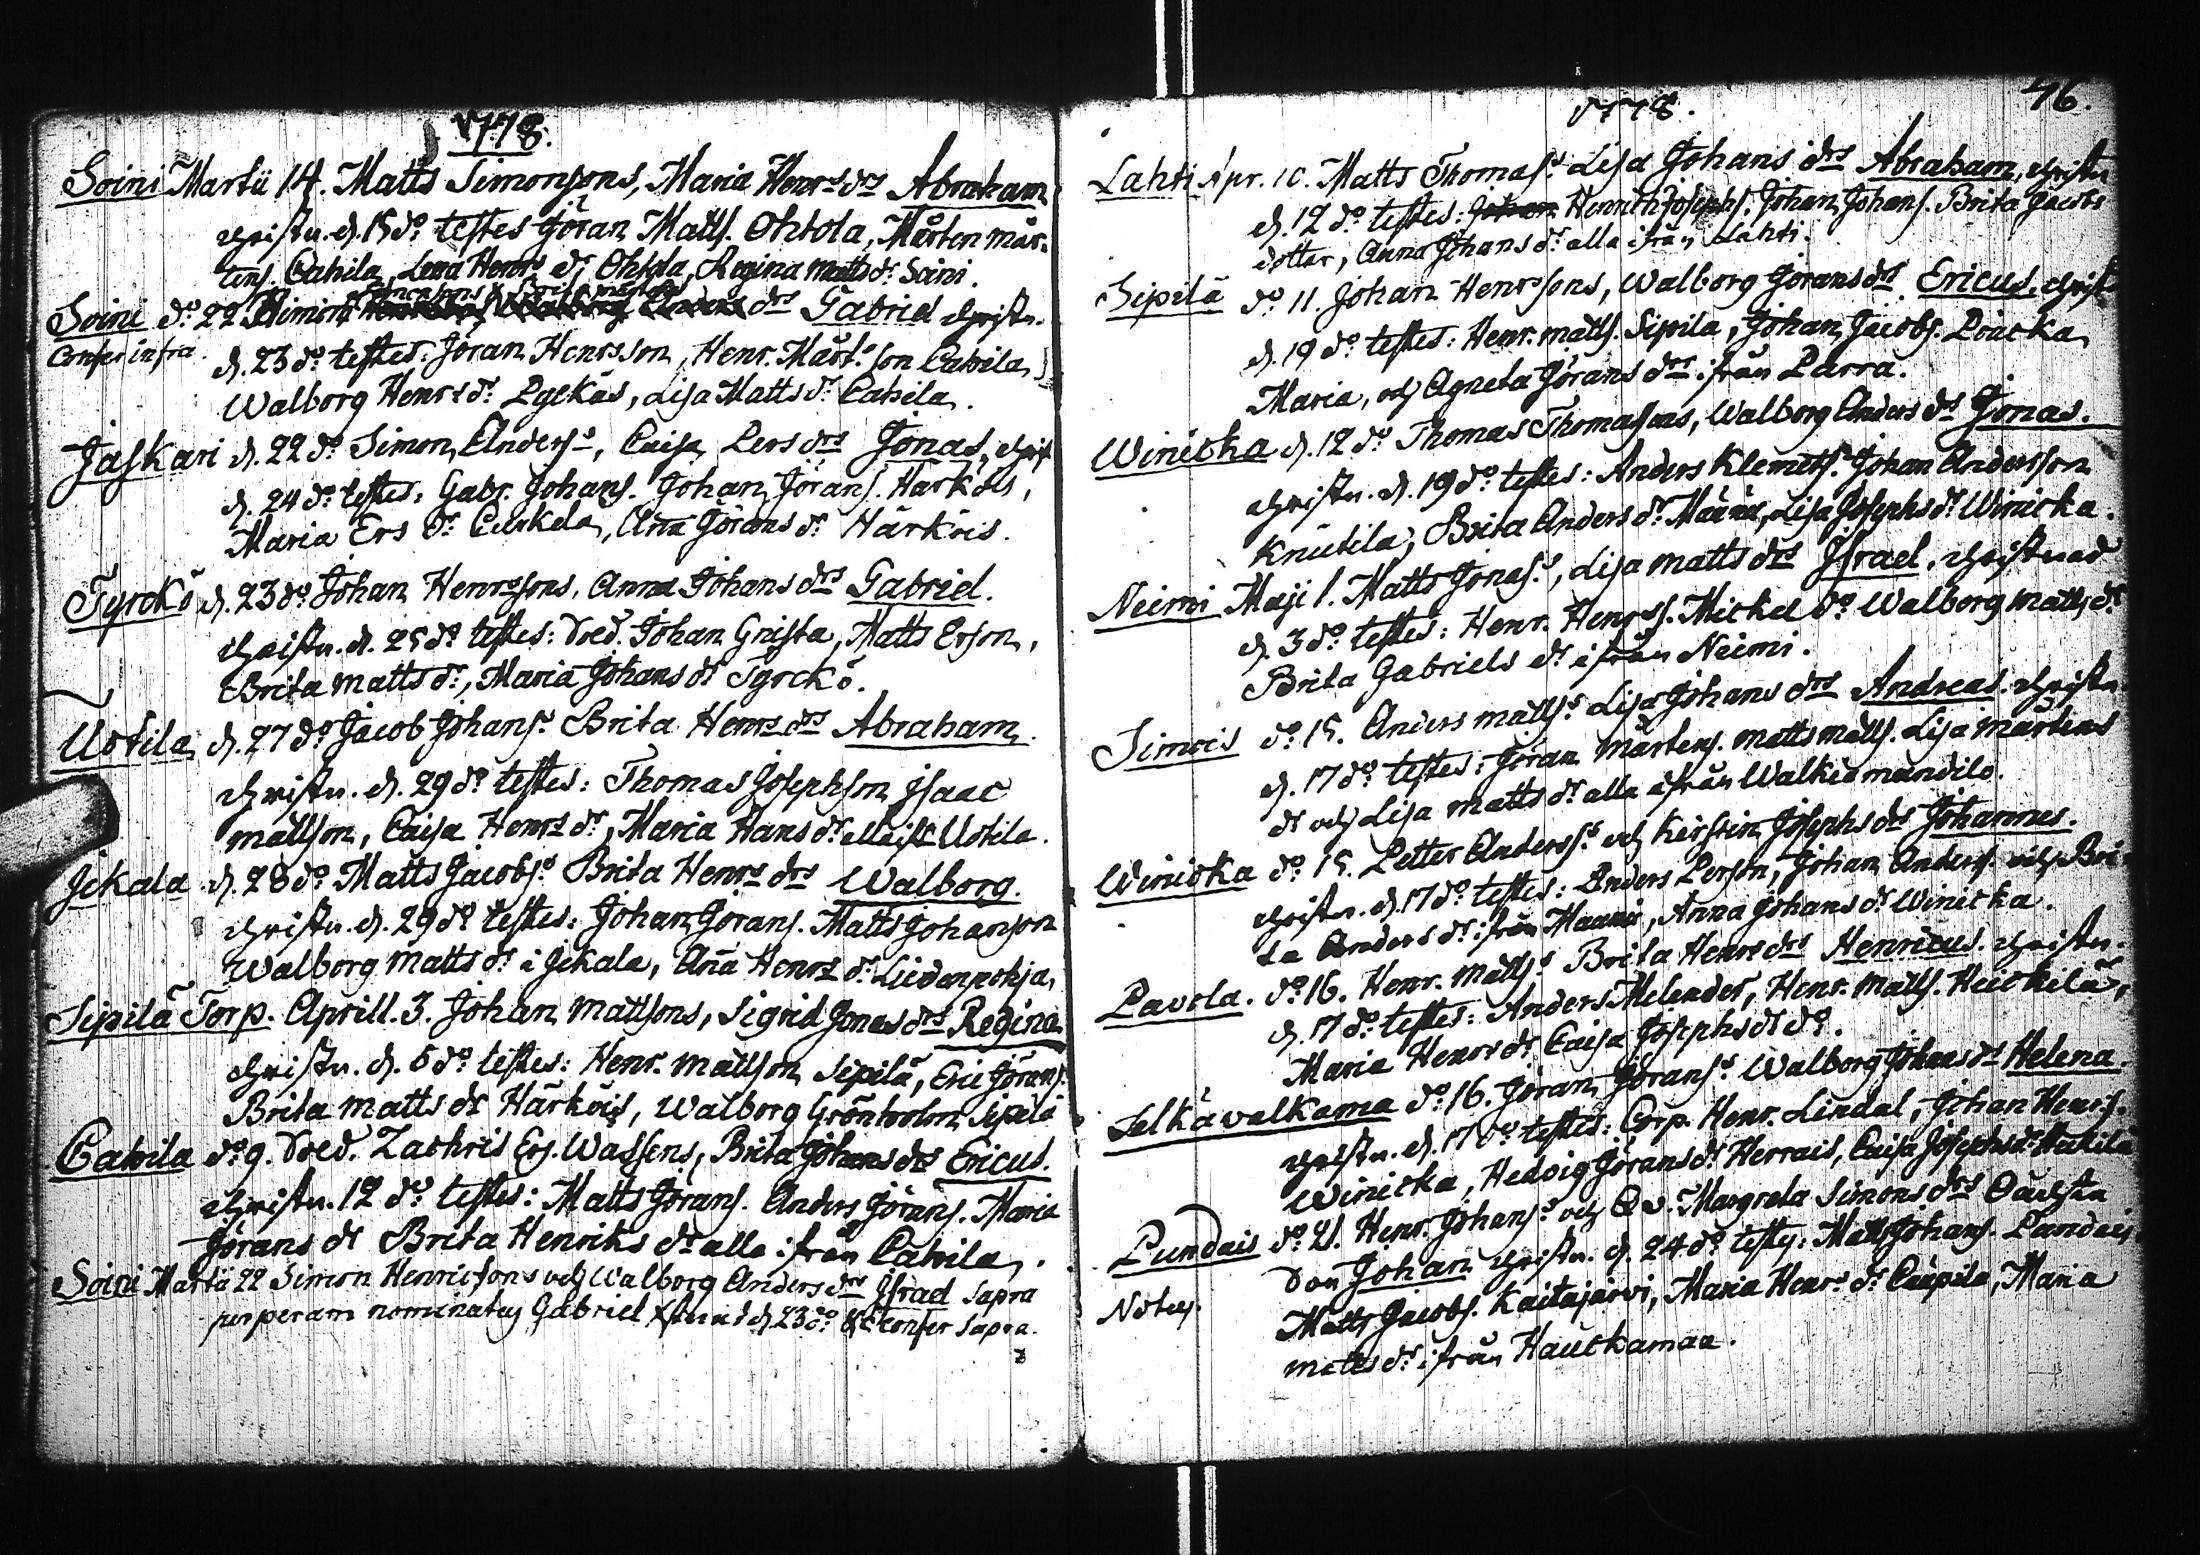 1778.
Soini Martii 14. Matts Simonsons, Maria Henrs drs Abraham
christn. d. 15 do testes Göran Matts. Ohtola, Mårten mår-
tens. Cahila, Lena Henrs dr Ohtola, Regina matts dr Soini.
Soini do 22 Simon drs Gabriel christn.
Confer infra. d. 23 do testes: Jöran Henrsson, Henr. Mårt.son Cahila,
Walborg Henrs dr Pyckäs, Lisa Matts dr Cahila.
Jaskari d. 22 do Simon Anderss, Caisa Pers drs Jonas, christ
d. 24 do testes: Gabr. Johans. Johan Jörans. Härköis,
Maria Ers dr, Aña Görans dr Härköis.
Tyrckö d. 23 do Johan Henrssons, Anna Johans drs Gabriel.
christn. d. 25 do testes: Johan Gnista, Matts Erson,
Brita matts dr, Maria Johans dr Tyrckö.
Uotila d. 27 do Jacob Johans. Brita Henrs drs Abraham.
christn. d. 29 do testes: Thomas Josephson Isaac
mattson, Caisa Henrs dr, Maria Hans dr Uotila.
Jckala d. 28 do Matts Jacobs. Brita Henrs drs Walborg.
christn. d. 29 do testes: Johan Görans. Matts Johanson
Walborg matts dr i Jckala, Aña Henrs dr Liedenpohja.
Sipilä Torp. Aprill. 3. Johan Mattsons, Sigrid Jonas drs Regina
christn. d. 5 do testes: Henr. mattson Sipilä, Eric Jörans.
Brita matts dr Härköis, Walborg Grönholm Sipilä
Cahila do 9. Zachris Ers. Wassens, Brita Johans drs Ericus.
christn. 12 do testes: Matts Görans. Anders Jörans. Maria
Jörans dr Brita Henriks dr alla ifrån Cahila.
Soini Martii 22 Simon Henricsons och Walborg Anders drs Israel supra
perperam nominatus Gabriel d. 23 do &c confer supra.
1778. 46.
Lahti Apr. 10. Matts Thomas. Lisa Johans drs Abraham, christn
d. 12 do testes: Johan Henrich Josephs. Johan Johans. Brita Jacobs
dotter, Anna Johans dr alla ifrån Lahti.
Sipilä do 11. Johan Henrssons, Walborg Görans drs Ericus, christ
d. 19 do testes: Henr. matts. Sipila, Johan Jacobs.
Maria, och Agneta Görans drs ifrån Parra.
Winicka d. 12 do Thomas Thomasons, Walborg Anders drs Jonas.
christn. d. 19 do testes: Anders Klemets. Johan Andersson
Knutila, Brita Anders dr, Lisa Josephs dr Winicka.
Neimi Maji 1. Matts Jonas., Lisa matts drs Israel. christnad
d. 3 do testes: Henr. Henrss. Mickel do Walborg matts dr
Brita Gabriels dr ifrån Neimi.
Simois do 15. Anders matts. Lisa Johans drs Andreas. christn
d. 17 do testes: Göran mårtens. matts matts. Lisa mårtens
dr och Lisa matts dr alla ifrån Walkiamandilo.
Winicka do 15. Petter Anderss. och Kirstin Josephs drs Johannes.
christn. d. 17 do testes: Anders Person, Johan Anders. och Bri-
ta Anders dr ifrån, Anna Johans dr Winicka.
Pavola. do 16. Henr. matts. Brita Henrs drs Henricus. christn.
d. 17 do testes: Anders Melender, Henr. matts. Heickilä,
Maria Henrs dr Caisa Josephs dr do.
Selkäwalkama do 16. Göran Görans. Walborg Johans drs Helena.
christn. d. 17 do testes: Corp. Henr. Lindal, Johan Henrs.
Winicka, Hedvig Görans dr Herrais, Caisa Josephs dr
Pundais do 21. Henr. Johans. och Q v. Margreta Simons drs
Son Johan christn. d. 24 do testes: Matts Johans. Pandais
Notus. Matts Jacobs. Kaitajärvi, Maria Henrs dr, Maria
matts dr ifrån Hauckamaa.